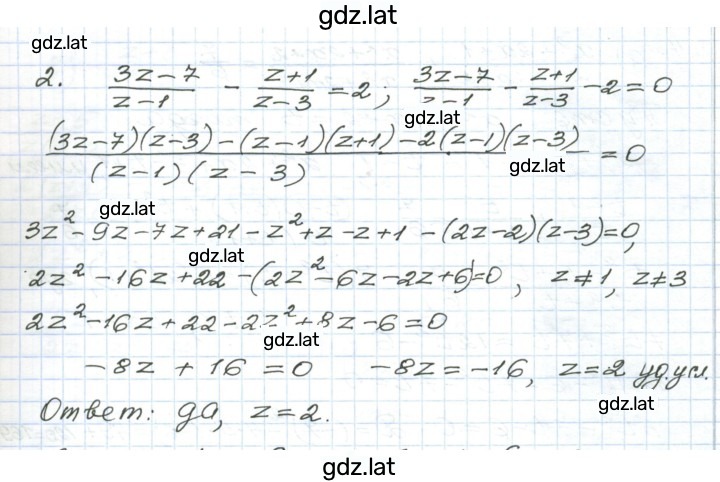 gdz.lat
gdz.lat
2. (3z-7)/(z-1) - (z+1)/(z-3) = 2; (3z-7)/(z-1) - (z+1)/(z-3) - 2 = 0
gdz.lat
((3z-7)(z-3) - (z-1)(z+1) - 2(z-1)(z-3))/((z-1)(z-3)) = 0
gdz.lat
gdz.lat
3z² - 9z - 7z + 21 - z² + z - z + 1 - (2z-2)(z-3)=0,
gdz.lat
2z² - 16z + 22 - (2z² - 6z - 2z + 6)=0, z≠1, z≠3
2z² - 16z + 22 - 2z² + 8z - 6 = 0
gdz.lat
-8z + 16 = 0 -8z = -16, z = 2 уд.усл.
gdz.lat
Ответ: да, z = 2.
gdz.lat